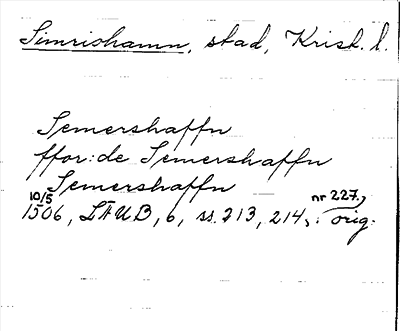 Simrishamn, stad, Krist. l.
Semershaffn
ffor:de Semershaffn
Semershaffn
10/5 nr 227.,
1506, LÄUB, 6, ss. 213, 214, : orig: